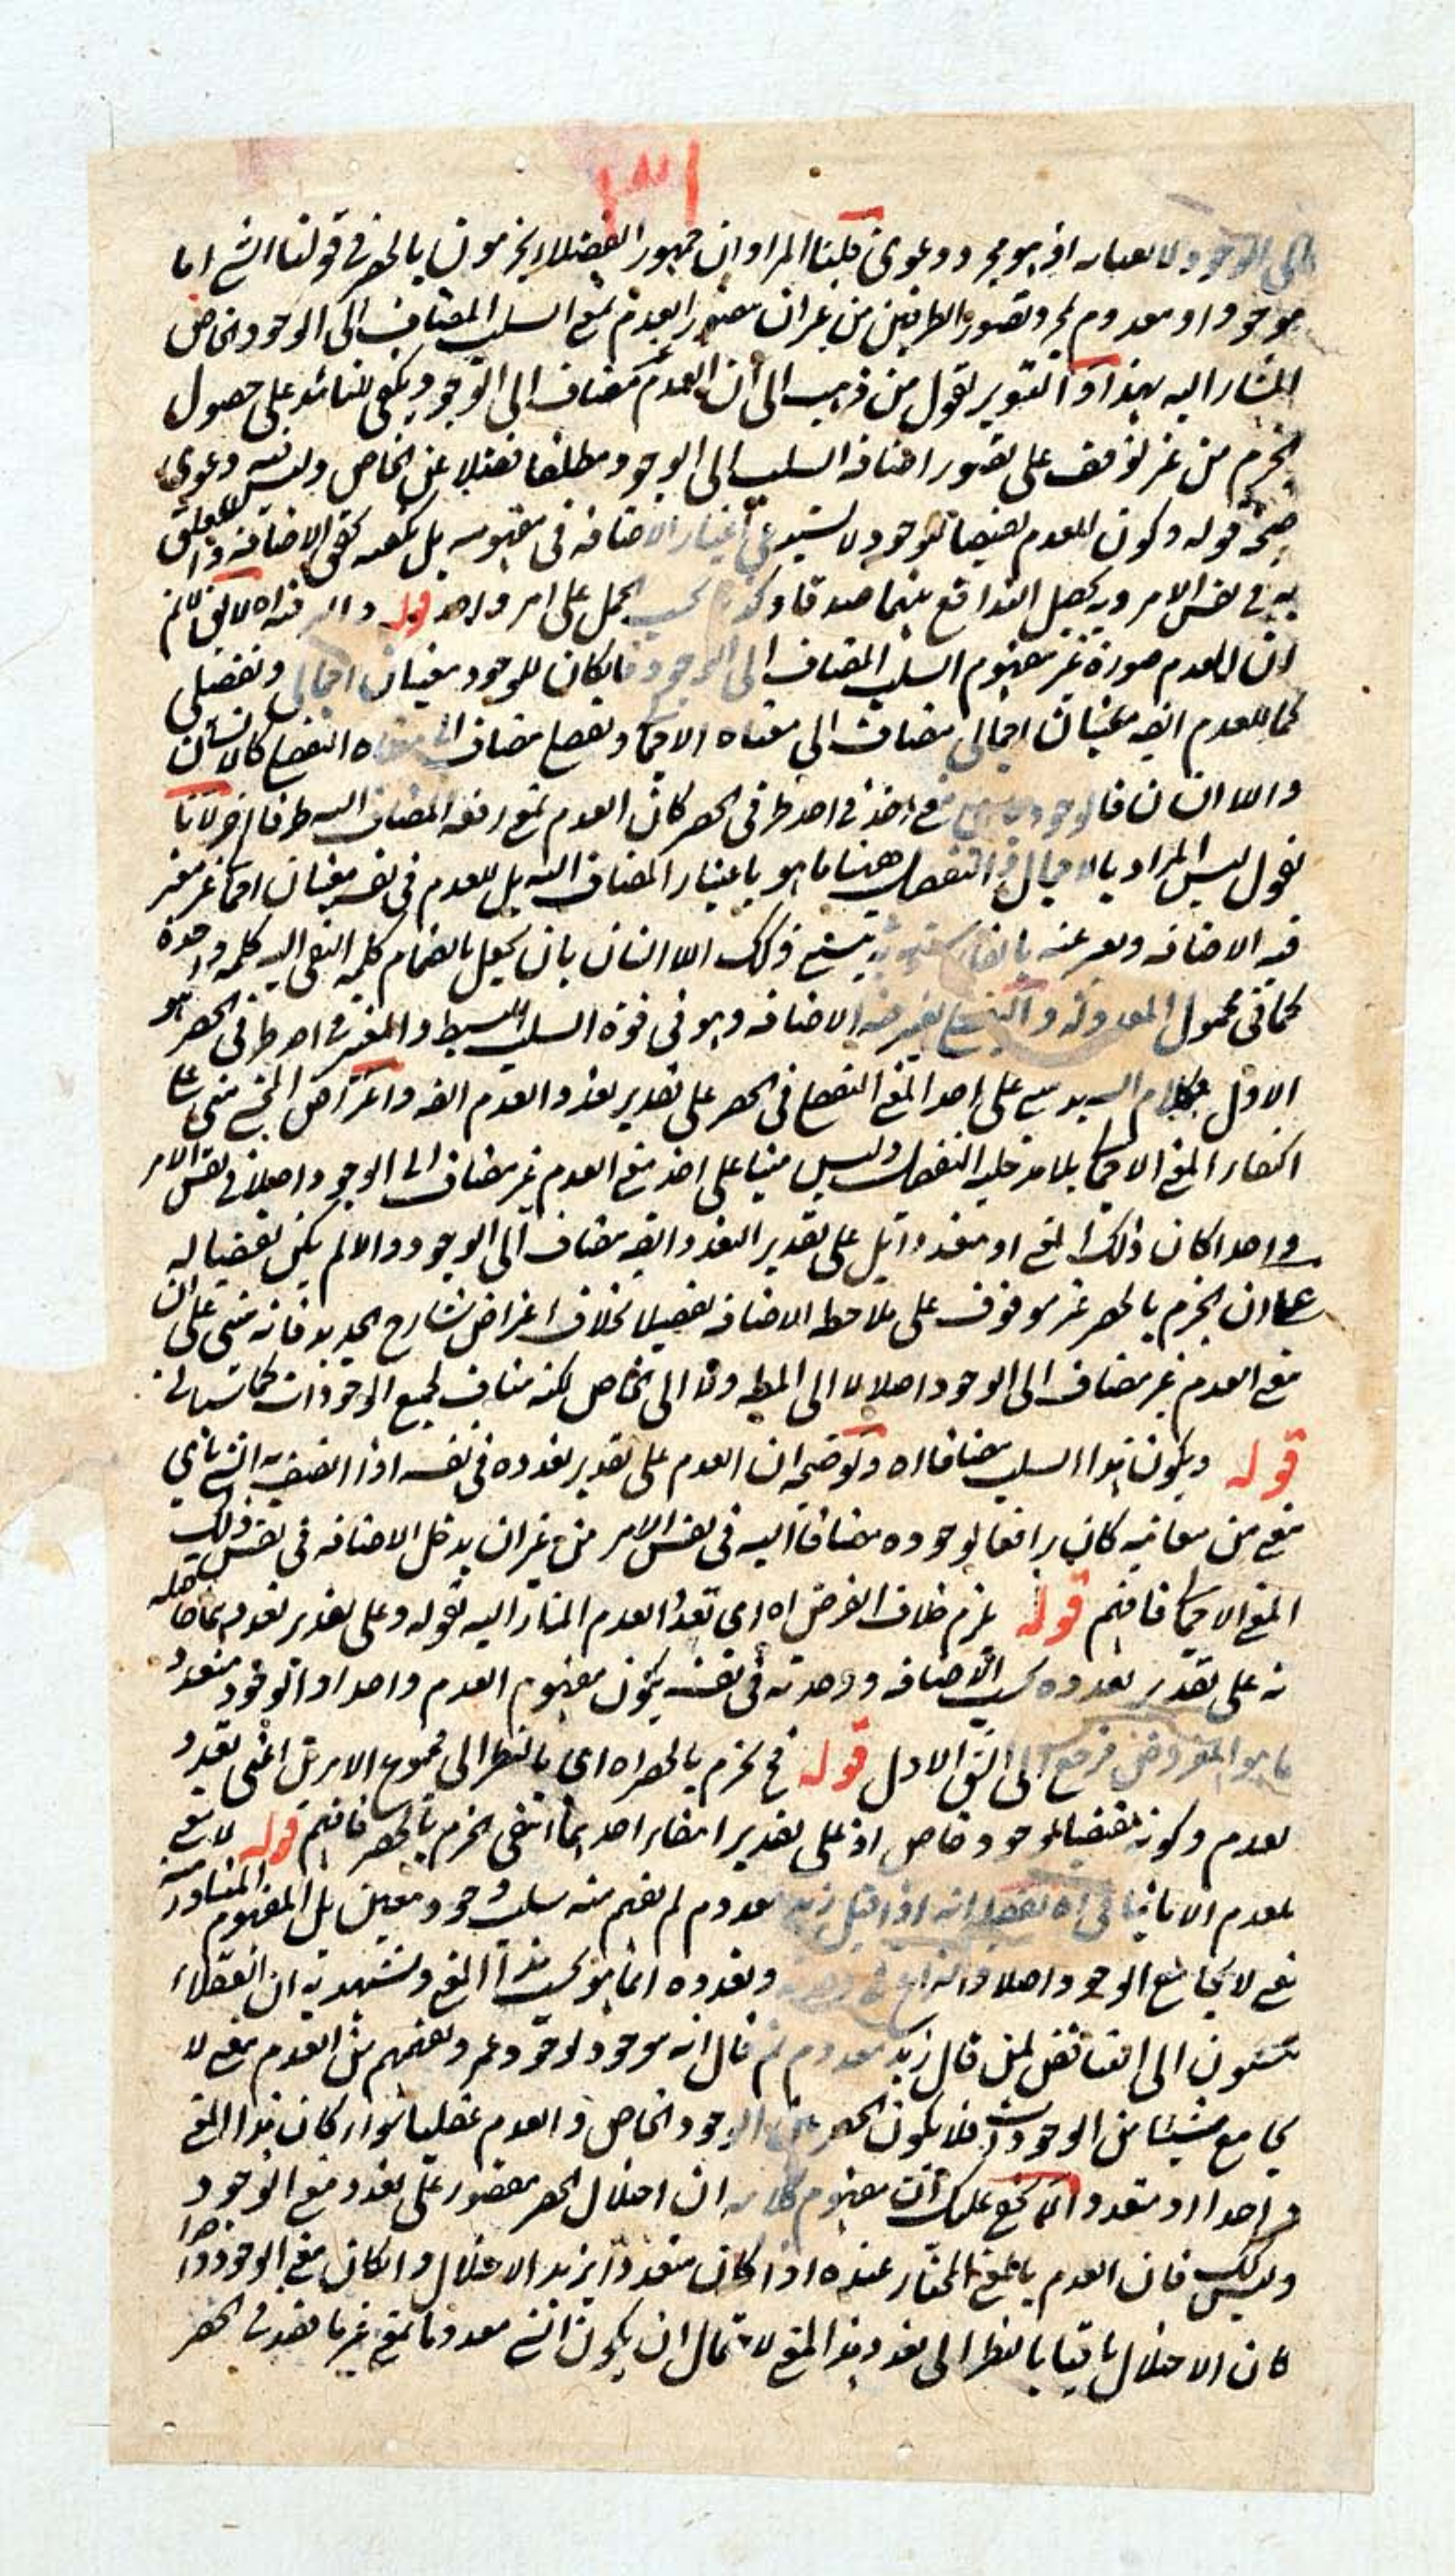 ٣١
الى الوجود لا يعبا به اذ هو مجرد دعوى قلنا المراد ان جمهور الفضلاء يجزمون بالحصر في قولنا الشئ اما
موجود او معدوم بمجرد تصور الطرفين من غير ان يتصور العدم بمعنى السلب المضاف الى الوجود الخاص
المشار اليه بهذا و التنوير لقول من ذهب الى ان العدم غير مضاف الى الوجود ويكفي للتائيد على حصول
الجزم من غير توقف على تصور اضافة السلب الى الوجود مطلقا فضلا عن الخاص وليس فيه دعوى
صحة قوله وكون العدم نقيضا للوجود لا يستدعي اعتبار الاضافة في مفهومه بل يكفيه تحقق الاضافة و التعلق
به في نفس الامر وبه يحصل التدافع بينهما صدقا وكذبا بحسب الحمل على امر واحد قوله و الرفد اه لا يقال لم
ان للعدم صورة غير مفهوم السلب المضاف الى الوجود فان كان للوجود معنيان اجمالي وتفصيلي
كما للعدم ايضه معنيان اجمالي مضاف الى معناه الاجمالي وتفصيلي مضاف الى معناه التفصيلي كالانسان
واللا انسان فالوجود باي معنى اخذ في احد طرفي الحصر كان العدم بمعنى رفعه المضاف اليه طرفا اخر لانا
نقول ليس المراد بالاجمال و التفصيل ههنا ما هو باعتبار المضاف اليه بل للعدم في نفسه معنيان اجمالي غير معتبر
فيه الاضافة ويعبر عنه بالفارسية نيستي وذلك اللا انسان بان يجعل بانضمام كلمة النفي اليه كلمة واحدة
كما في محمول المعدولة و التفصيلي يعتبر فيه الاضافة وهو في قوة السلب البسيط و المعتبر في احد طرفي الحصر هو
الاول فكلام السيد مبني على اخذ المعنى التفصيلي في الحصر على تقدير تعدد العدم ايضه و اعتراض المحشي مبني على
اعتبار المعنى الاجمالي بلا مدخلية التفصيل وليس مبنيا على اخذ معنى العدم غير مضاف الى الوجود اصلا في نفس الامر
واحدا كان ذلك المعنى او متعددا بل على تقدير التعدد ايضه مضاف الى الوجود والا لم يكن نقيضا له
على ان الجزم بالحصر غير موقوف على ملاحظة الاضافة تفصيلا بخلاف اعتراض شارح الجديد فانه مبني على ان
معنى العدم غير مضاف الى الوجود اصلا لا الى المطلق ولا الى الخاص لكنه مناف لجميع الوجودات كما سياتي
قوله ويكون هذا السلب مضافا اه و توضيحه ان العدم على تقدير تعدده في نفسه اذا اتصف به الشئ باي
معنى من معانيه كان رافعا لوجوده مضافا اليه في نفس الامر من غير ان يدخل الاضافة في نفس ذلك
المعنى الاجمالي فافهم قوله يلزم خلاف الفرض اه اي تعدد العدم المشار اليه بقوله وعلى تقدير تعدده بما حاصله
نه على تقدير تعدده بحسب الاضافة و وحدته في نفسه يكون مفهوم العدم واحدا و الوجود متعدد
ما هو المفروض فرجع الى الشق الاول قوله فح نجزم بالحصر اه اي بالنظر الى مجموع الامرين اعني تعدد
لعدم وكونه نقيضا لموجود خاص اذ على تقدير انتفاء احدهما انتفى الجزم بالحصر فافهم قوله لا معنى
للعدم الا ما ينافي اه تفصيله انه اذا قيل زيد معدوم لم يفهم منه سلب وجود معين بل المفهوم المتبادر منه
معنى لا يجامع الوجود اصلا و النزاع في وحدته وتعدده انما هو بحسب هذا المعنى ويشهد به ان العقلاء
ينسبون الى التناقض لمن قال زيد معدوم ثم قال انه موجود لوجود عمر ولفهمهم من العدم معنى لا
يجامع شيئا من الوجودات فلا يكون الحصر بين الوجود الخاص و العدم عقليا سواء كان هذا المعنى
واحدا او متعددا لا يخفى عليك ان مفهوم كلامه ان اختلال الحصر مقصور على تعدد معنى الوجود
وليس كك فان العدم بالمعنى المختار عنده اذا كان متعددا يزيد الاختلال و ان كان معنى الوجود واحدا
كان الاختلال باقيا بالنظر الى تعدد هذا المعنى لاحتمال ان يكون الشئ معدوما بمعنى غير ما تعدد في الحصر